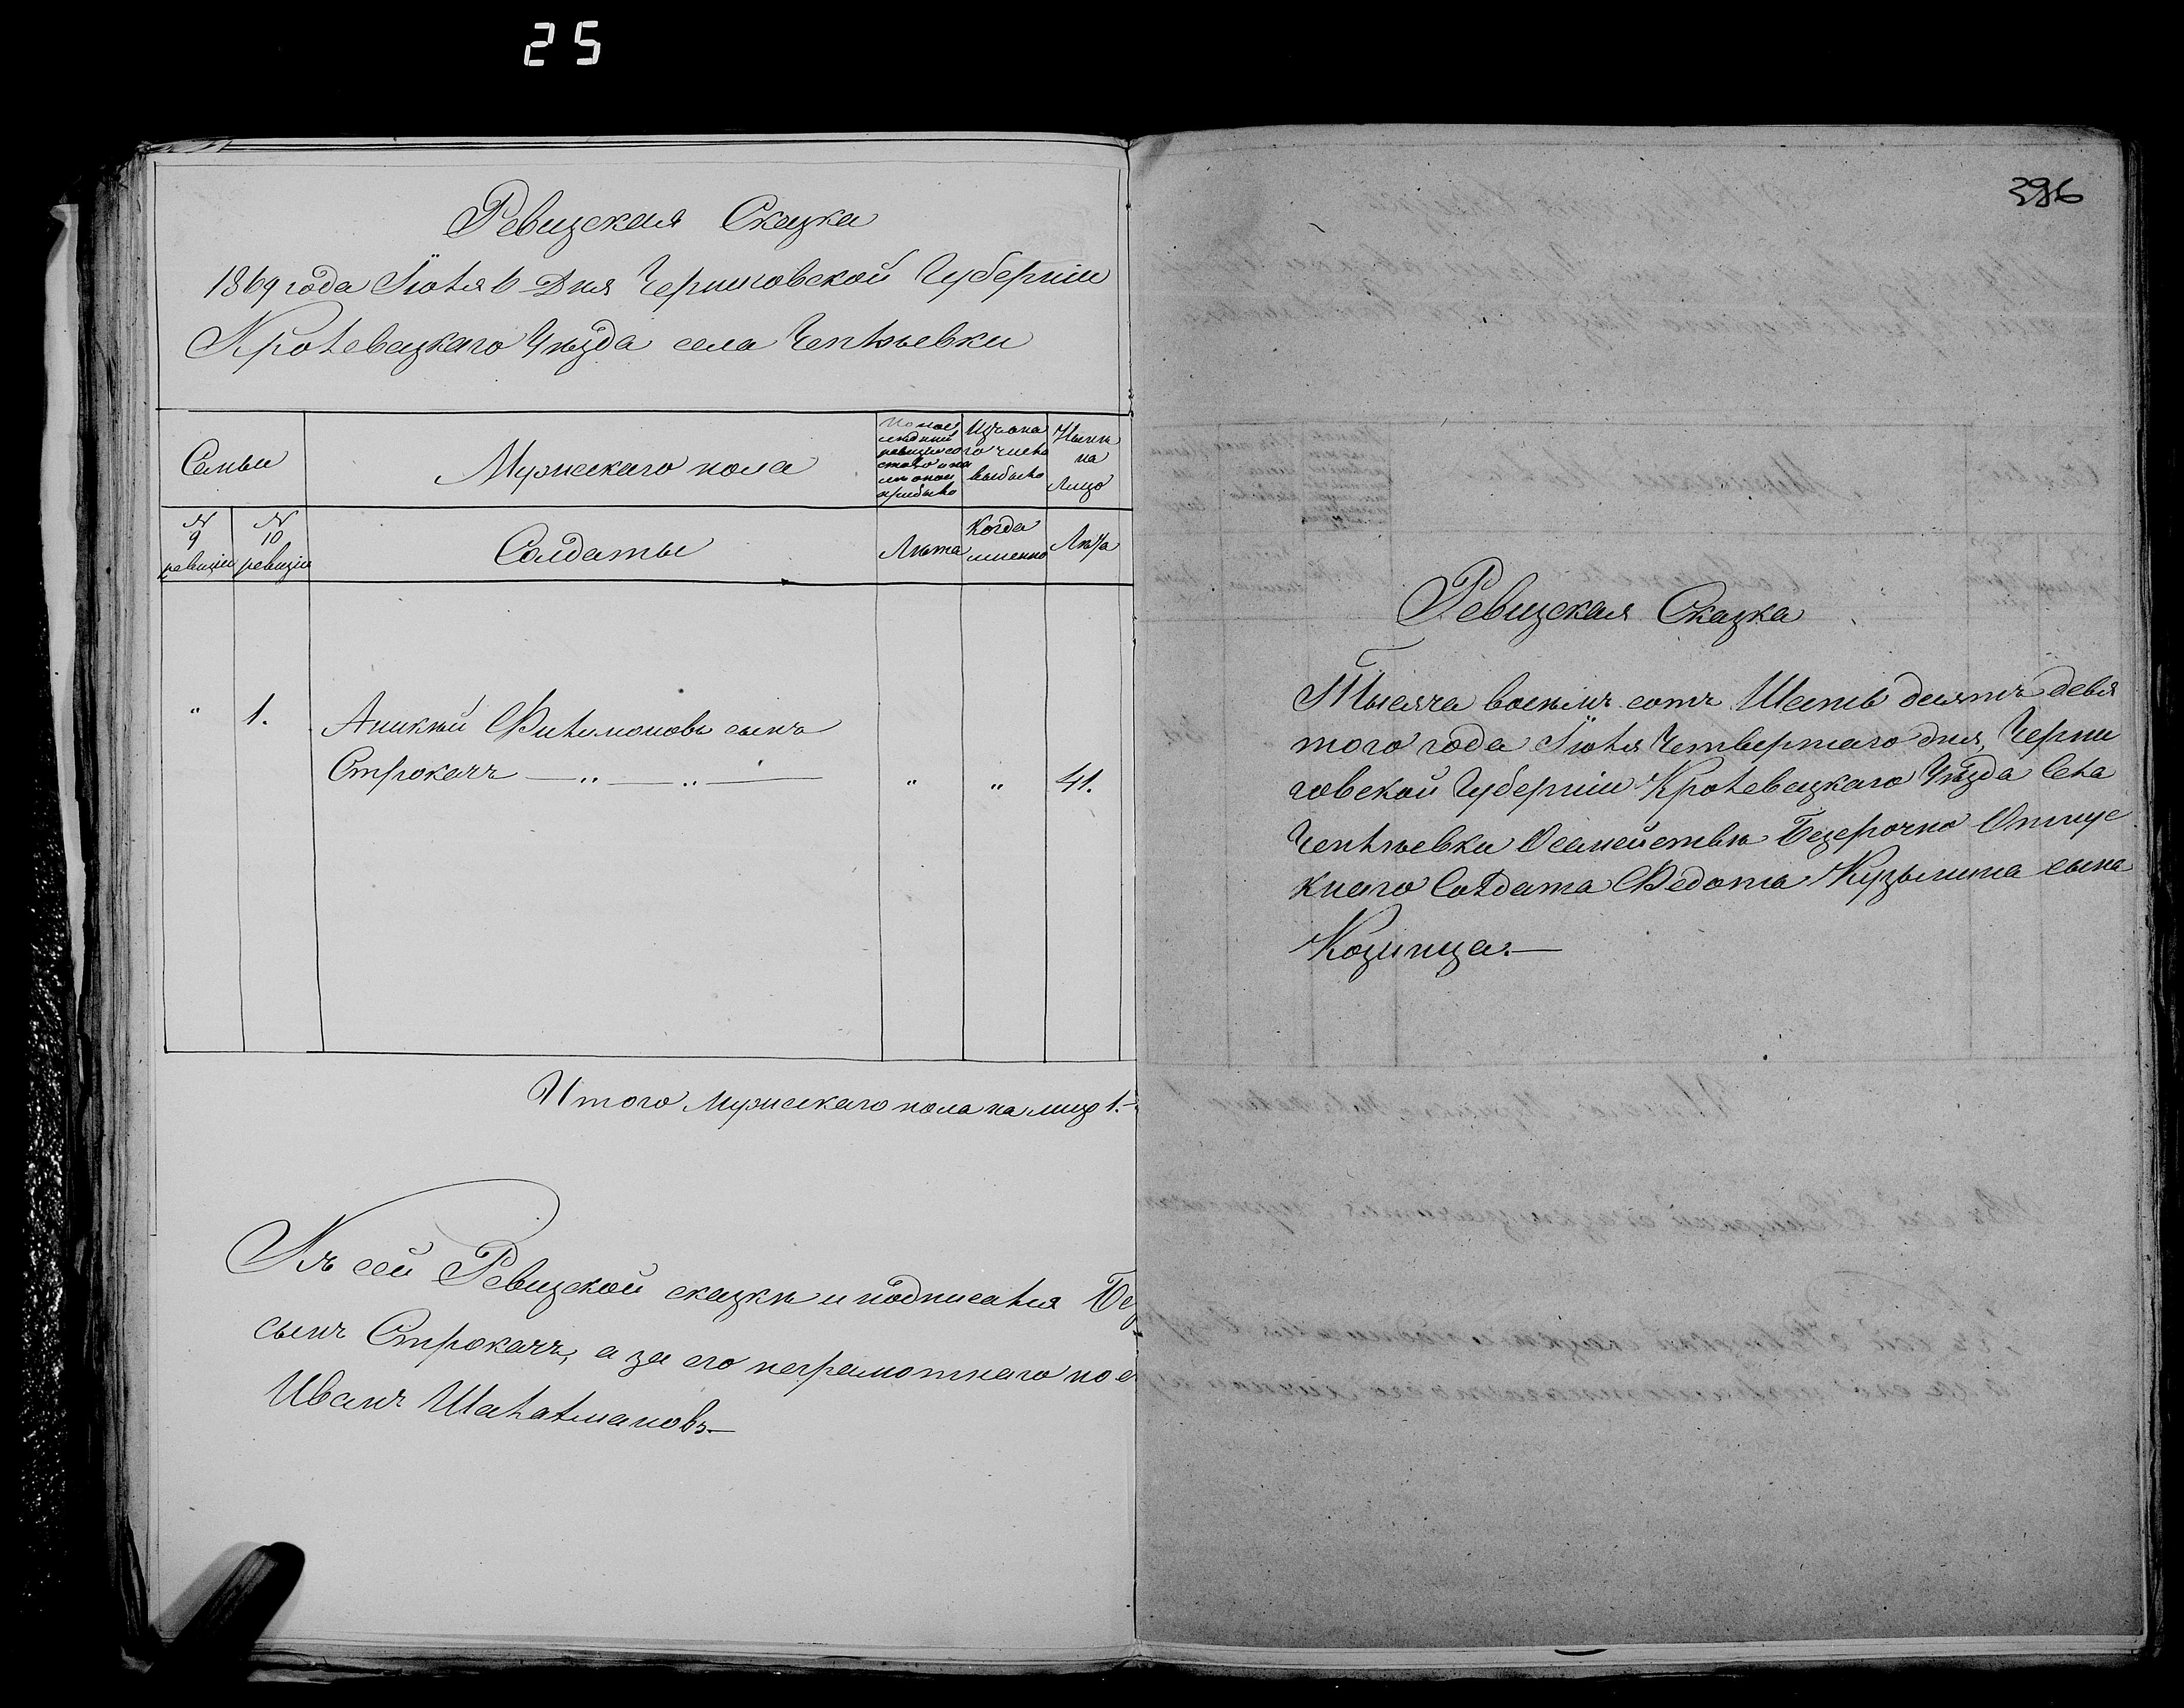 25
Ревизская Сказка
1869 года Іюля 6 Дня Черниговской Губерніи
Кролевецкаго Уѣзда села Чеплѣевки
Семьи
Мужескаго пола
По послѣдней ревизіи состояло и послѣ оной прибыло
Изъ онаго числа выбыло
Нынѣ на Лицо
№ 9 ревизіи
№ 10 ревизіи
Солдаты
Лѣта
Когда именно
Лѣта
„ 1. Аникѣй Филимоновъ сынъ
Строкачъ — „ — „ — „ „ 41.
Итого Мужескаго пола на лицо 1.—
Къ сей Ревизской сказкѣ и подписался Без
сынъ Строкачъ, а за его неграмотнаго по е
Иванъ Шалатмановъ.—
296
Ревизская Сказка
Тысяча восемь сотъ Шесть десятъ девя
того года Іюля Четвертаго дня, Черни
говской Губерніи Кролевецкаго Уѣзда Села
Чеплѣевки О семействѣ Безсрочно Отпус
кнаго Солдата Федота Кузьмина сына
Козинца.—